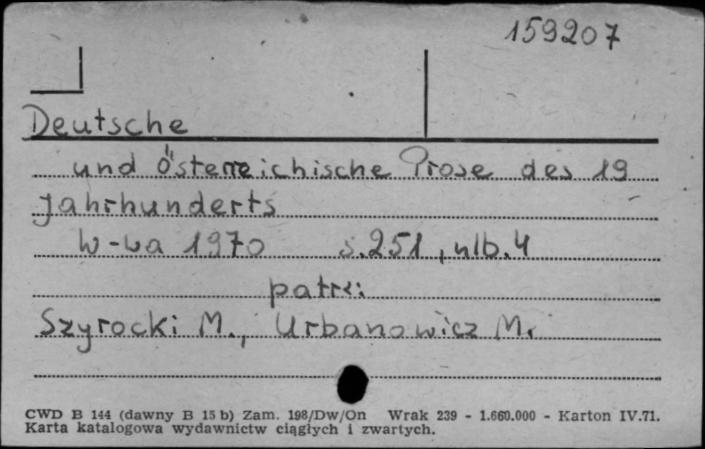 159207
Deutsche
und österreichische Prose des 19
Jahrhunderts
W-wa 1970 s.251, nlb.4
patrz:
Szyrocki M., Urbanowicz M.
CWD B 144 (dawny B 15 b) Zam. 198/Dw/On Wrak 239 - 1.660.000 - Karton IV.71.
Karta katalogowa wydawnictw ciągłych i zwartych.